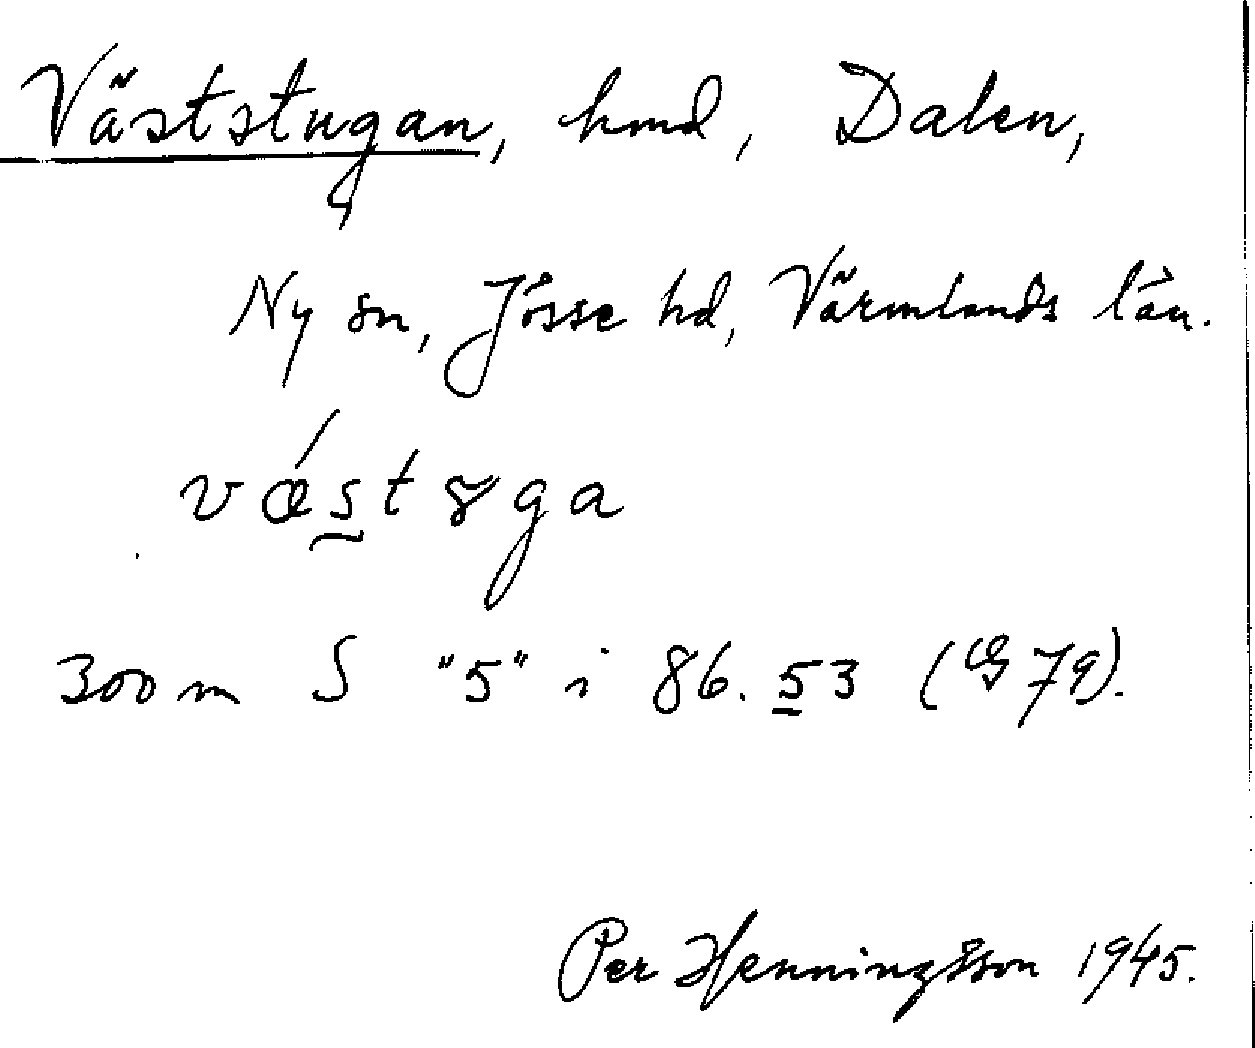 Väststugan, hmd, Dalen,
Ny sn, Jösse hd, Värmlands län.
vǽs̰tȣga
300 m S "5" i 86.53 (G 79).
Per Henningsson 1945.